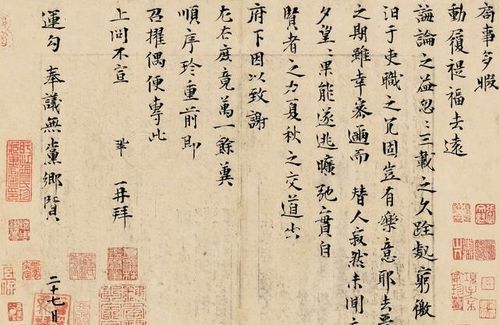 局事多暇
動履禔福去遠
誨論之益忽忽三載之久跧處窮徼
汩于吏職之冗固豈有樂意耶去
之期雖幸密邇而替人寂然未聞
夕望望果能遂逃曠弛實自
賢者之力夏秋之交道出
府下因以致謝
左右庶竟萬一餘冀
順序珍重前即
召擢偶便專此
上問不宣 鞏 再拜
運勾奉議無黨鄉賢 二十七日